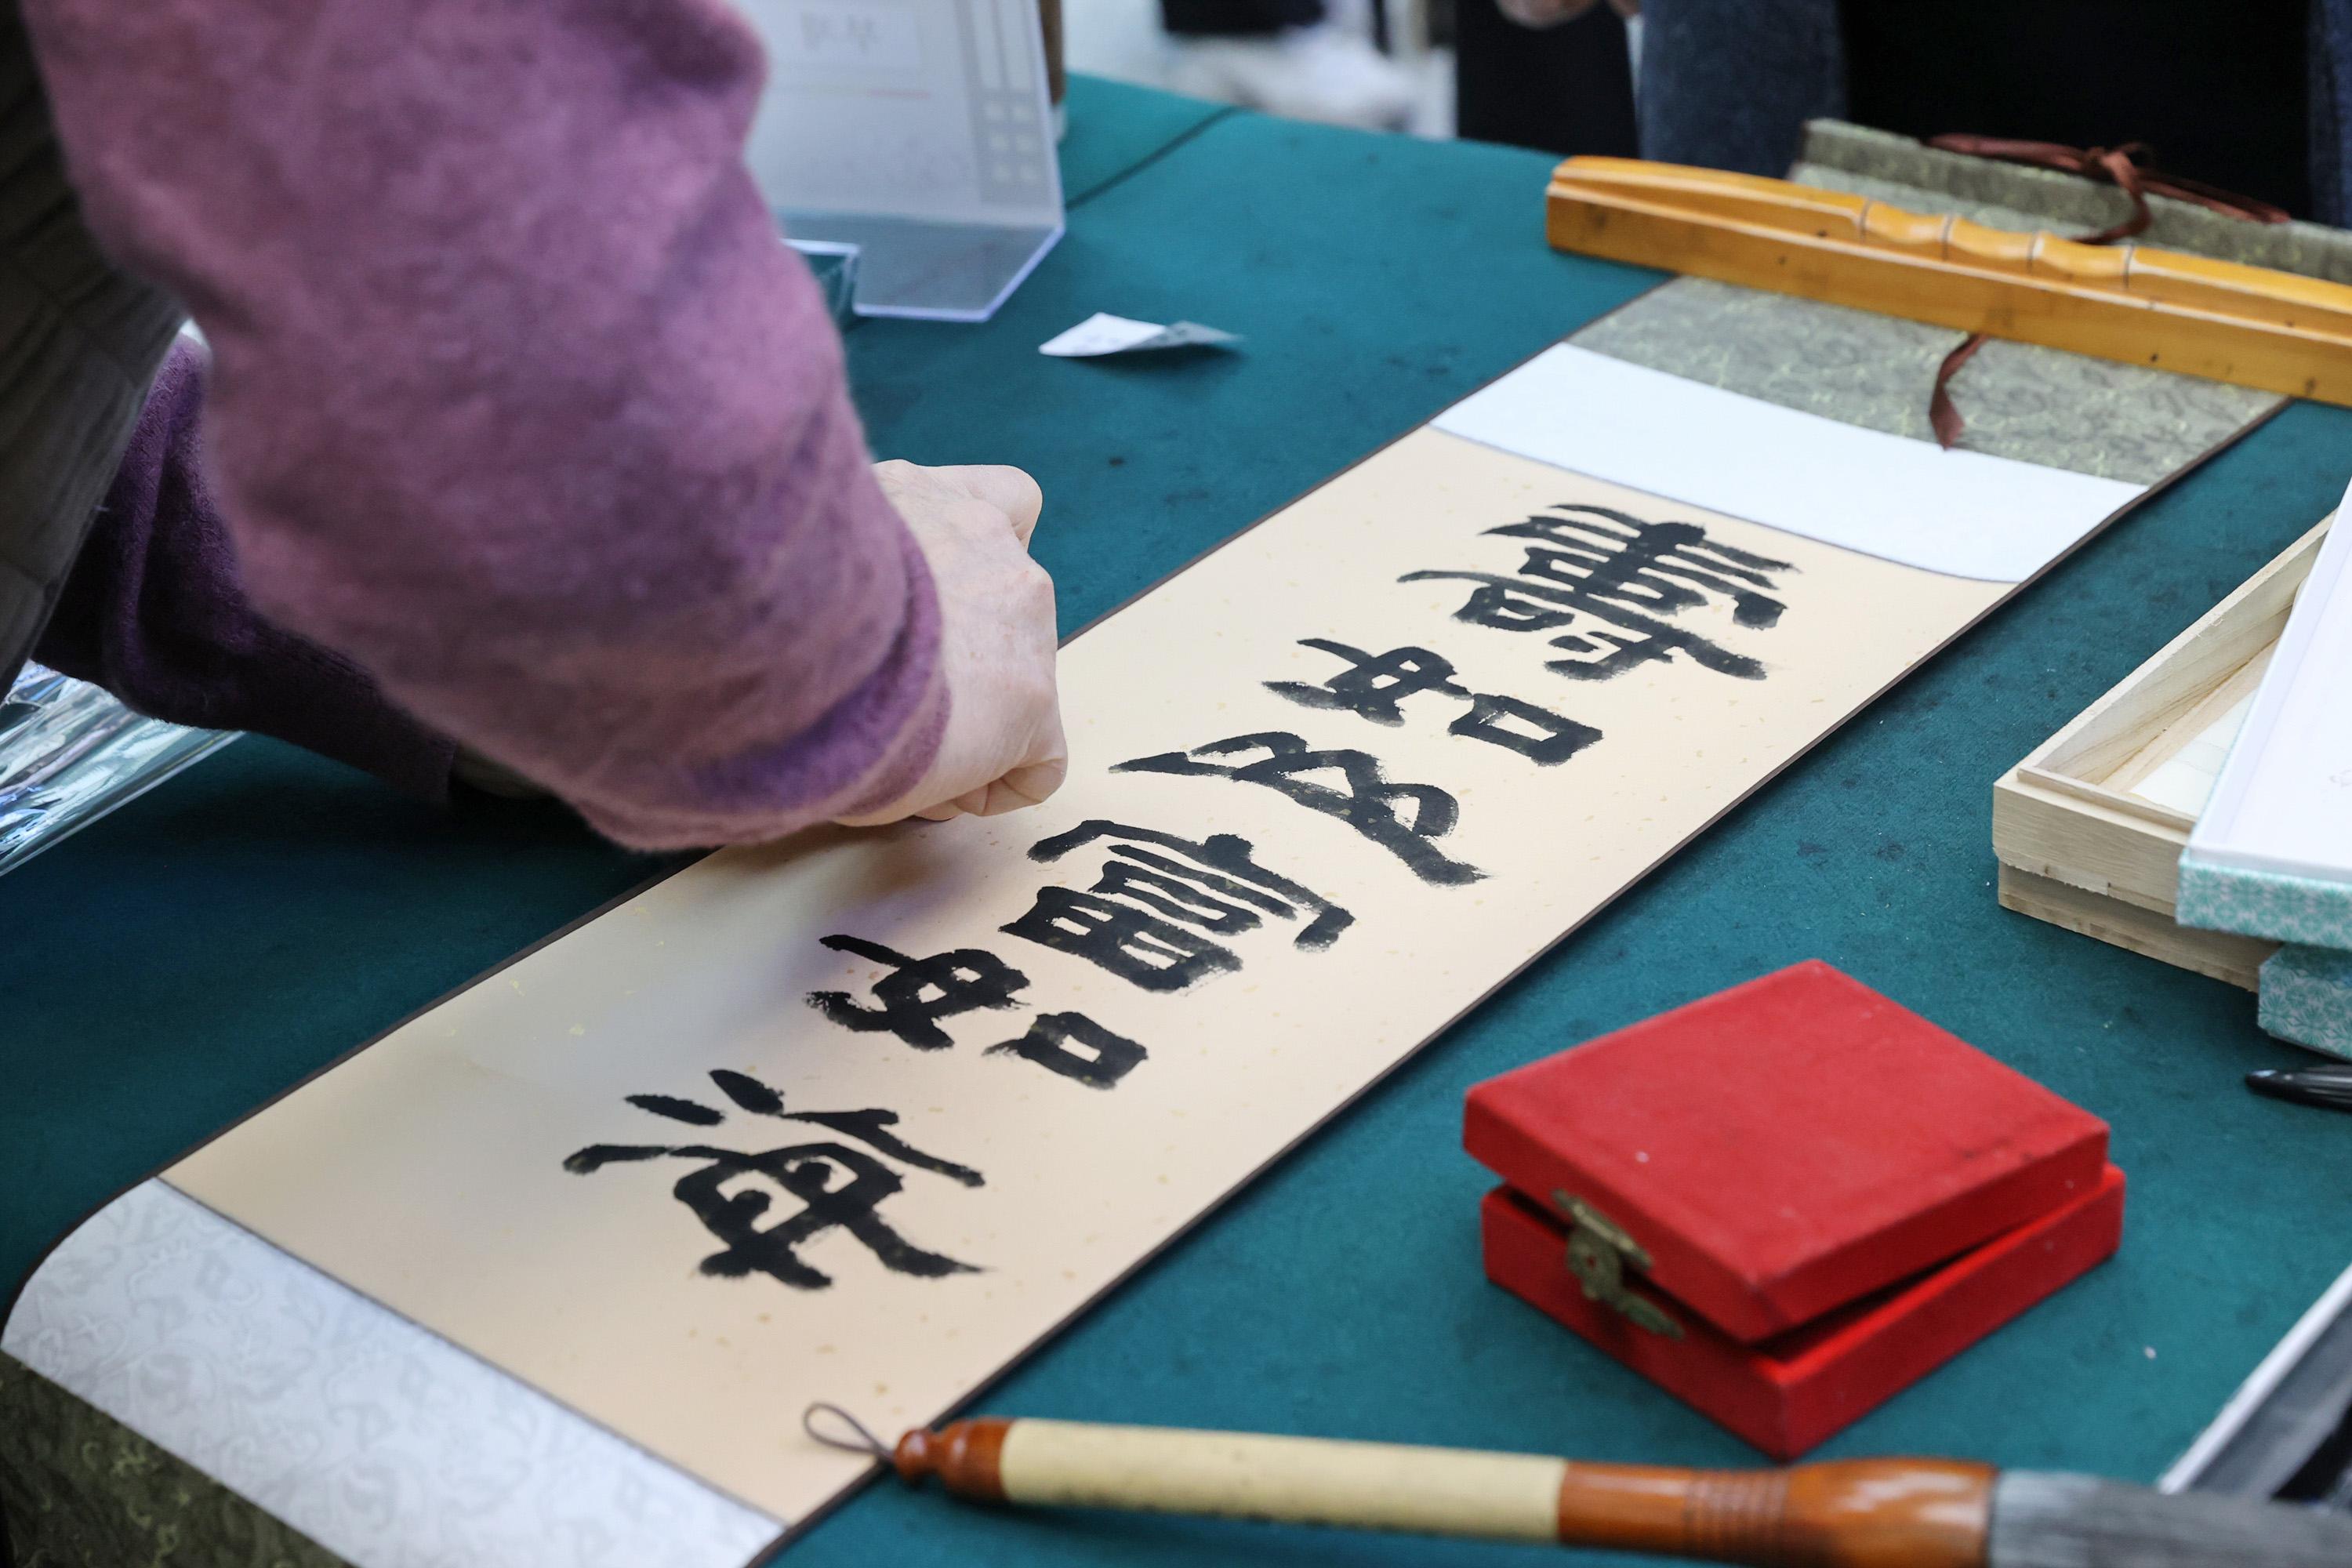 壽如山富如海